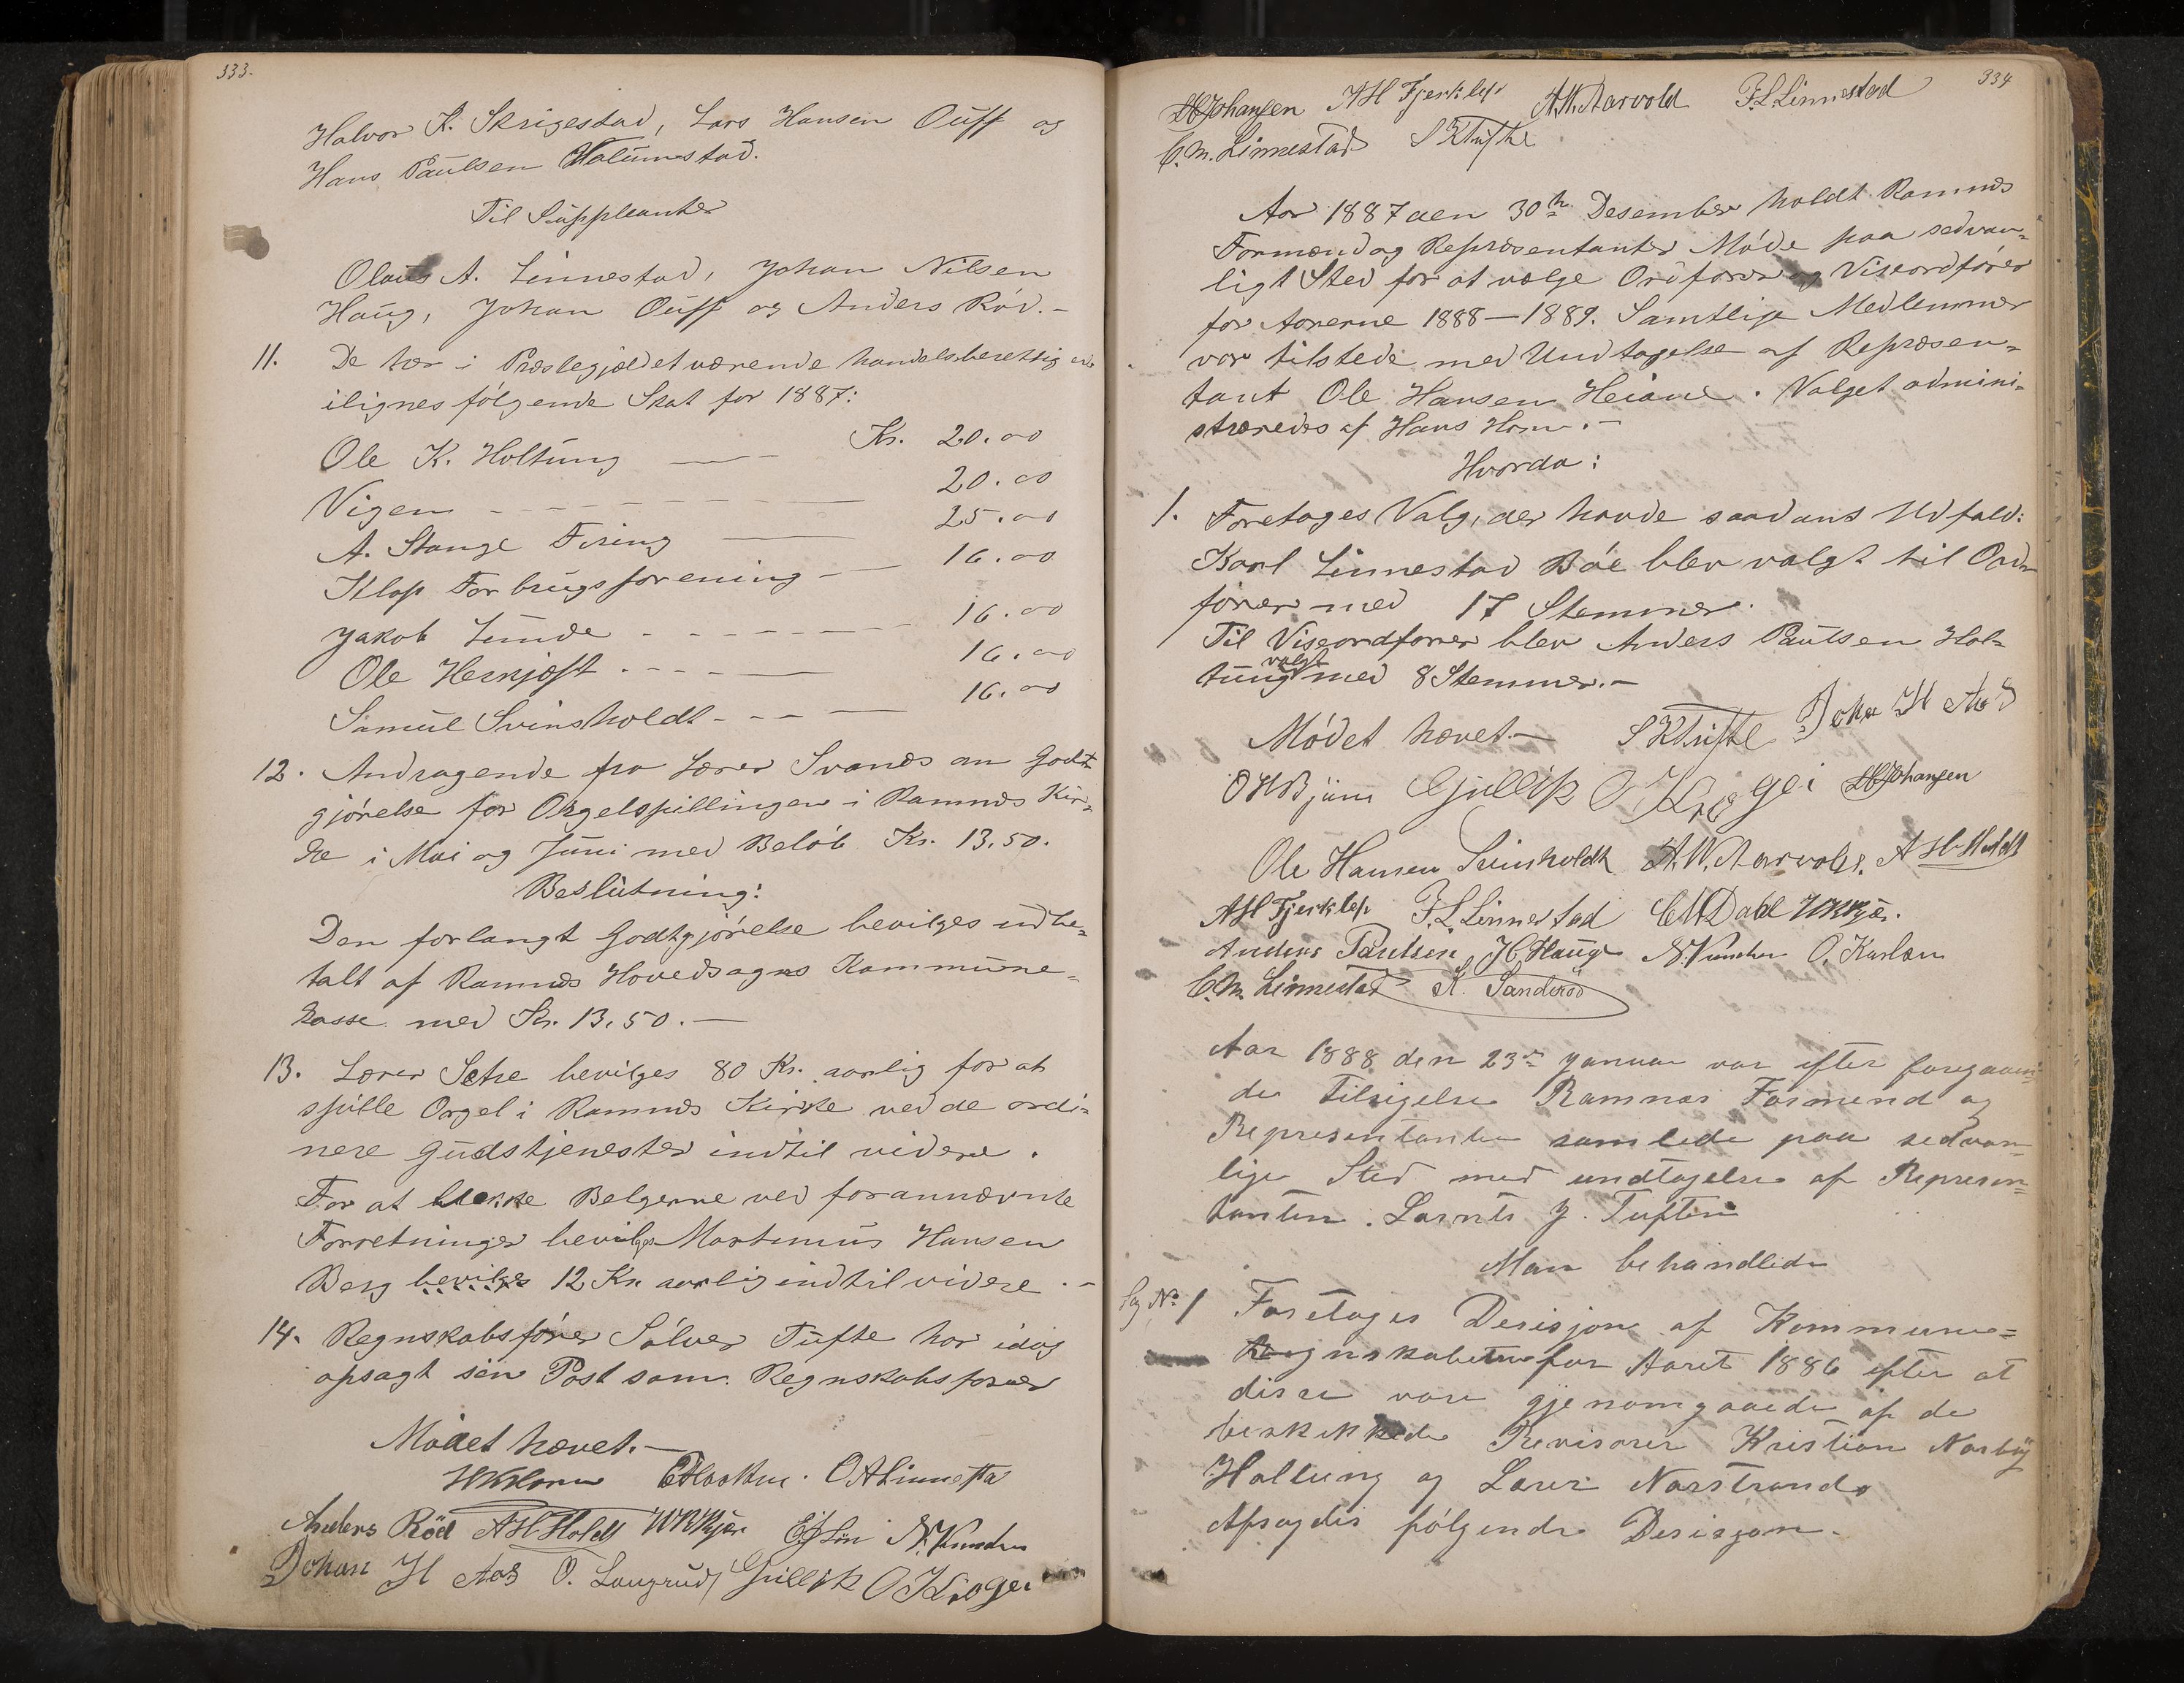 333.
Halvor K. Skrigestad, Lars Hansen Ouff og
Hans Paulsen Holumstad.
Til Suppleanter
Olaus A. Linnestad, Johan Nilsen
Haug, Johan Ouff og Anders Röd.-
11. De her i Præstegjældet værende handelsberettigede
ilignes følgende Skat for 1887:
Ole K. Holtung Kr. 20.00
Vigen 20.00
A. Stange Firing 25.00
Klop Forbrugsforening 16.00
Jakob Lunde 16.00
Ole Herkjøst 16.00
Samuel Svinsholdt 16.00
12. Andragende fra Lærer Svanes om Godt-
gjørelse for Orgelspillingen i Ramnæs Kir-
ke i Mai og Juni med Beløb Kr. 13.50.
Beslutning:
Den forlangt Godtgjørelse bevilges udbe-
talt af Ramnæs Hovedsogns Kommune-
kasse med Kr. 13,50.-
13. Lærer Setre bevilges 80 Kr. aarlig for at
spille Orgel i Ramnæs Kirke ved de ordi-
nere Gudstjenester indtil videre.
For at trække Belgerne ved forannævnte
Forretninger bevilges Martinius Hansen
Berg bevilges 12 Kr. aarlig indtil videre.-
14. Regnskabsfører Sölver Tufte har idag
opsagt sin Post som Regnskabsfører
Mödet hævet.-
Anders Röd AHHoldt WRKjær N. Knudsen
Johan H Aas O. Langrud Gullik O Kroger
334
HJohansen AH Fjerklep A.W. Aarvold F.L. Linnestad
C.M. Linnestad SKTufte
Aar 1887 den 30te Desember holdt Ramnæs
Formænd og Repræsentanter Möde paa sedvan-
ligt Sted for at vælge Ordfører og Viseordfører
for Aarene 1888-1889. Samtlige Medlemmer
var tilstede med Undtagelse af Repræsen-
tant Ole Hansen Heiane. Valget admini-
streredes af Hans Horn.-
Hvorda:
1. Foretages Valg, der havde saadant Udfald:
Karl Linnestad Böe blev valgt til Ord-
fører med 17 Stemmer.
Til Viseordfører blev Anders Paulsen Hol-
tung valgt med 8 Stemmer.-
Mödet hævet.- SKTufte Johan H Aas
OHBjune Gullik O Kroger HJohansen
Ole Hansen Svinholdt A.W. Aarvold. AHHoldt
AH Fjerklep F.L. Linnestad CMDahl WRKjær.
Anders Paulsen H. Haug N. Knudsen O. Karlsen
C.M. Linnestad K. Sanderöd
Aar 1888 den 23de Januar var efter foregaaen-
de Tilsigelse Ramnæs Formend og
Representanter samlede paa sedvan-
lige Sted med undtagelse af Represen-
tanten Larnts J. Tuften
Man behandlede
Sag No 1 Foretages Desisjon af Kommune-
Regnskaberne for Aaret 1886 efter at
disse vare gjenomgaaede af de
beskikkede Revisorer Kristian Narby
Holtung og Lærer Norstrand.
Afsagdes følgende Desisjon.